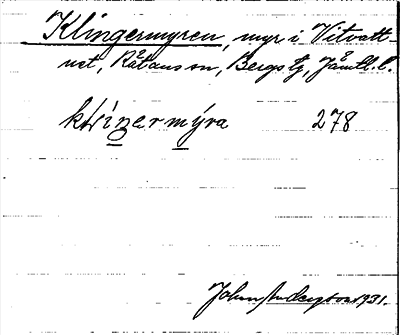 Klingermyren, myr i Vitvatt-
net, Rätans sn, Bergs tg, Jämtl. l.
klíŋermýra 278
John Anderson 1931.